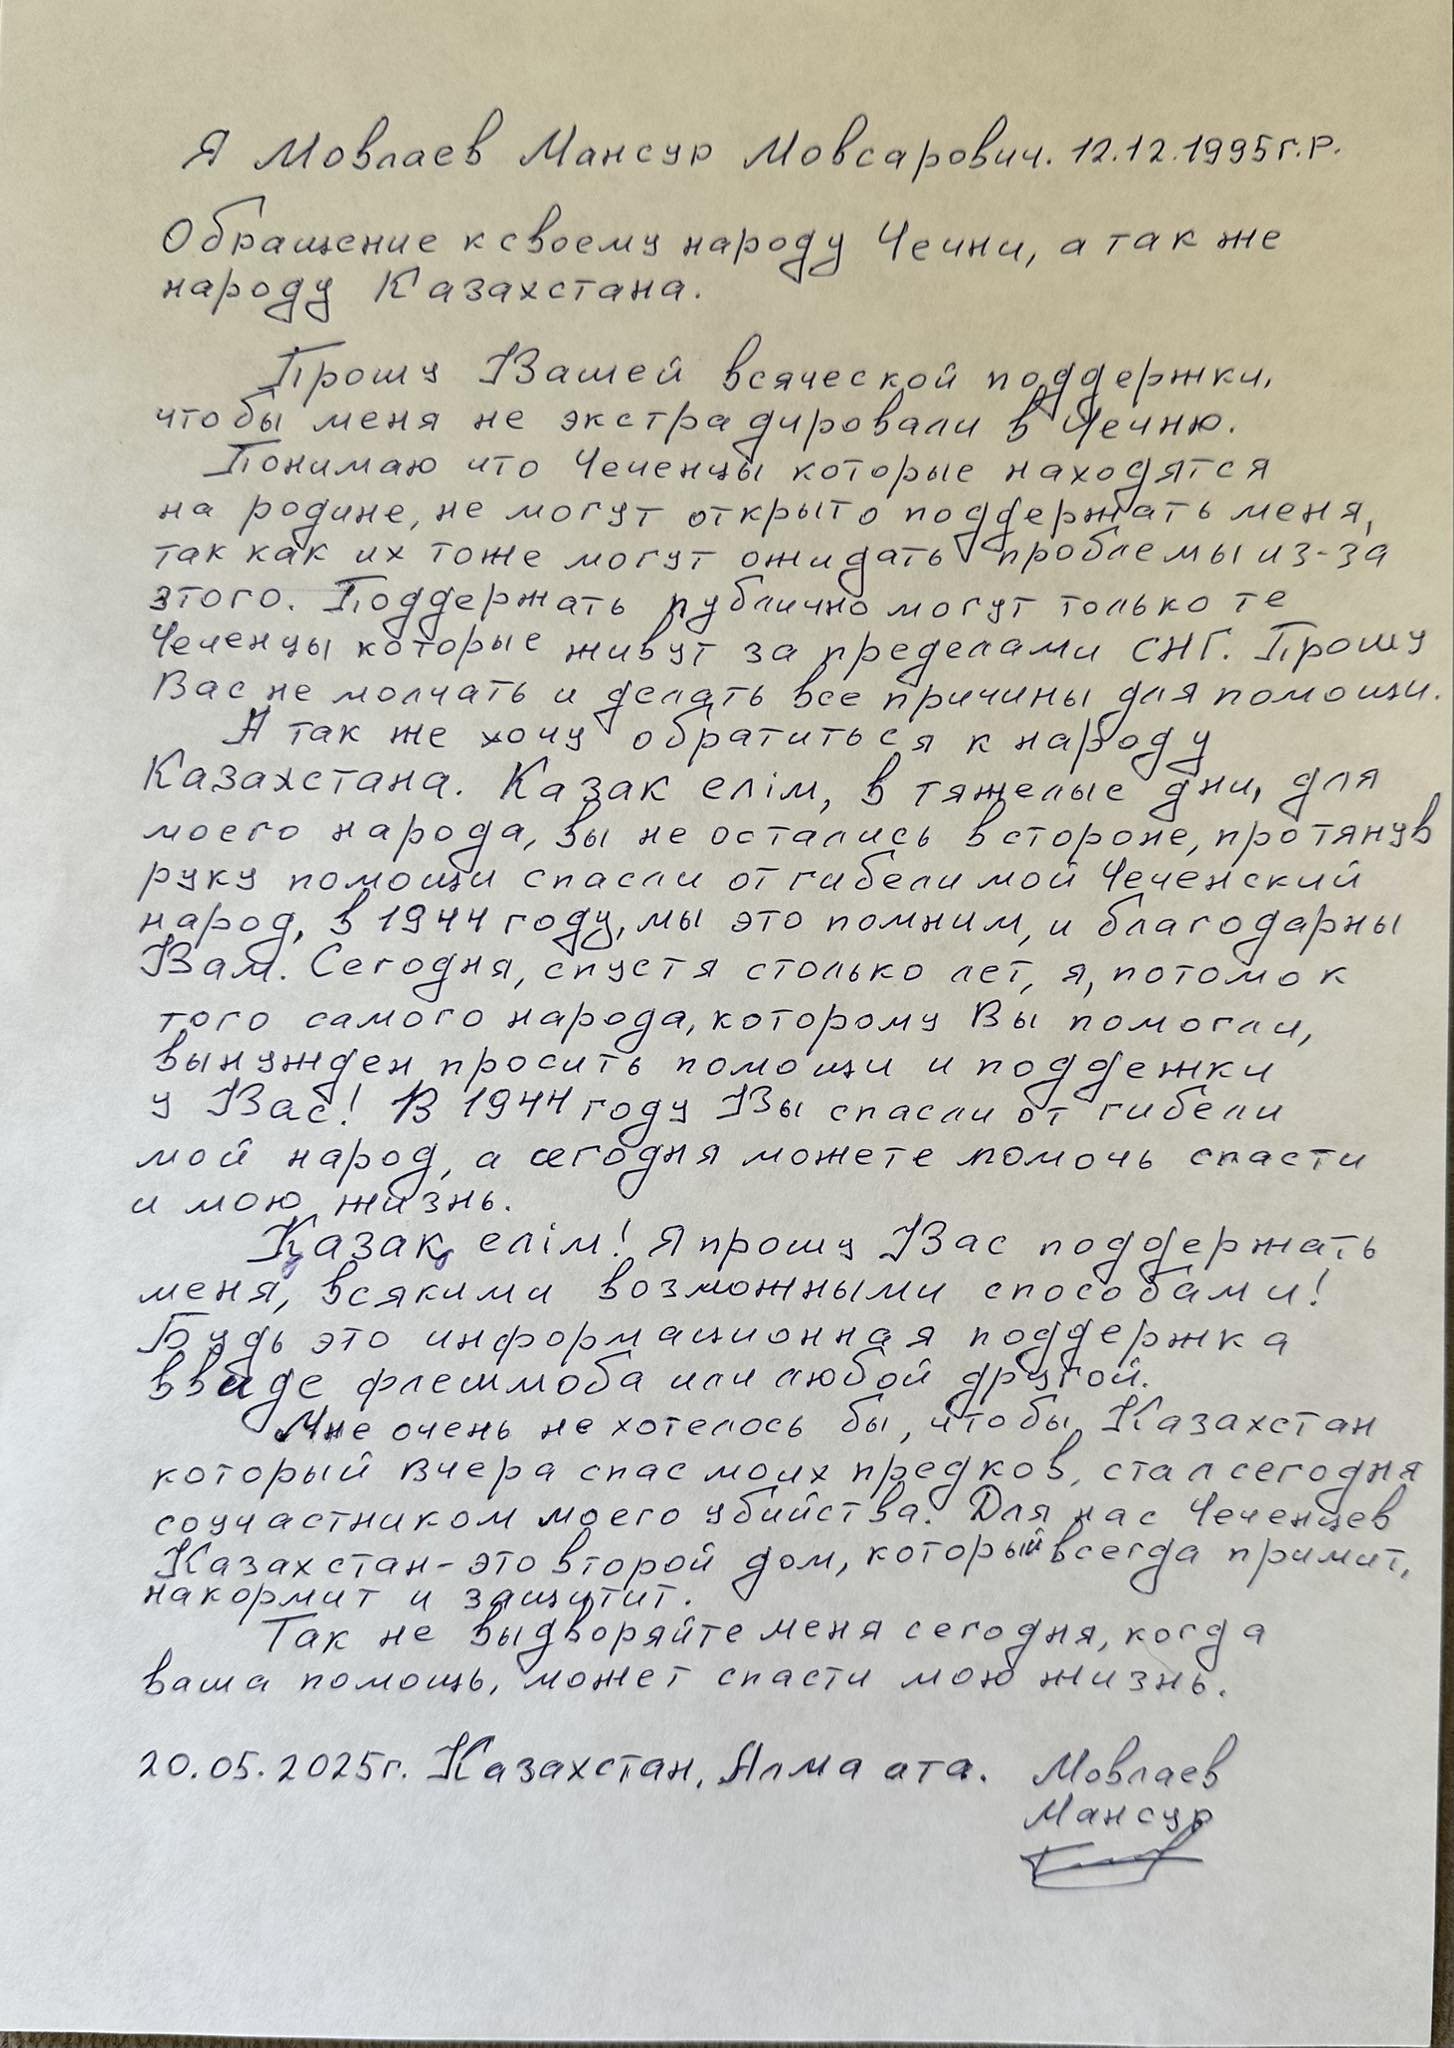 Я Мовлаев Мансур Мовсарович. 12.12.1995г.р.
Обращение к своему народу Чечни, а так же
народу Казахстана.
Прошу Вашей всяческой поддержки,
чтобы меня не экстрадировали в Чечню.
Понимаю что Чеченцы которые находятся
на родине, не могут открыто поддержать меня,
так как их тоже могут ожидать проблемы из-за
этого. Поддержать публично могут только те
Чеченцы которые живут за пределами СНГ. Прошу
Вас не молчать и делать все причины для помощи.
А так же хочу обратиться к народу
Казахстана. Казак елім, в тяжелые дни, для
моего народа, вы не остались в стороне, протянув
руку помощи спасли от гибели мой Чеченский
народ, в 1944 году, мы это помним, и благодарны
Вам. Сегодня, спустя столько лет, я, потомок
того самого народа, которому Вы помогли,
вынужден просить помощи и поддежки
у Вас! В 1944 году Вы спасли от гибели
мой народ, а сегодня можете помочь спасти
и мою жизнь.
Қазақ елім! Я прошу Вас поддержать
меня, всякими возможными способами!
Будь это информационная поддержка
в виде флешмоба или любой другой.
Мне очень не хотелось бы, чтобы Казахстан
который вчера спас моих предков, стал сегодня
соучастником моего убийства. Для нас Чеченцев
Казахстан-это второй дом, который всегда примит,
накормит и защитит.
Так не выдворяйте меня сегодня, когда
ваша помощь, может спасти мою жизнь.
20.05.2025г. Казахстан, Алма ата. Мовлаев
Мансур